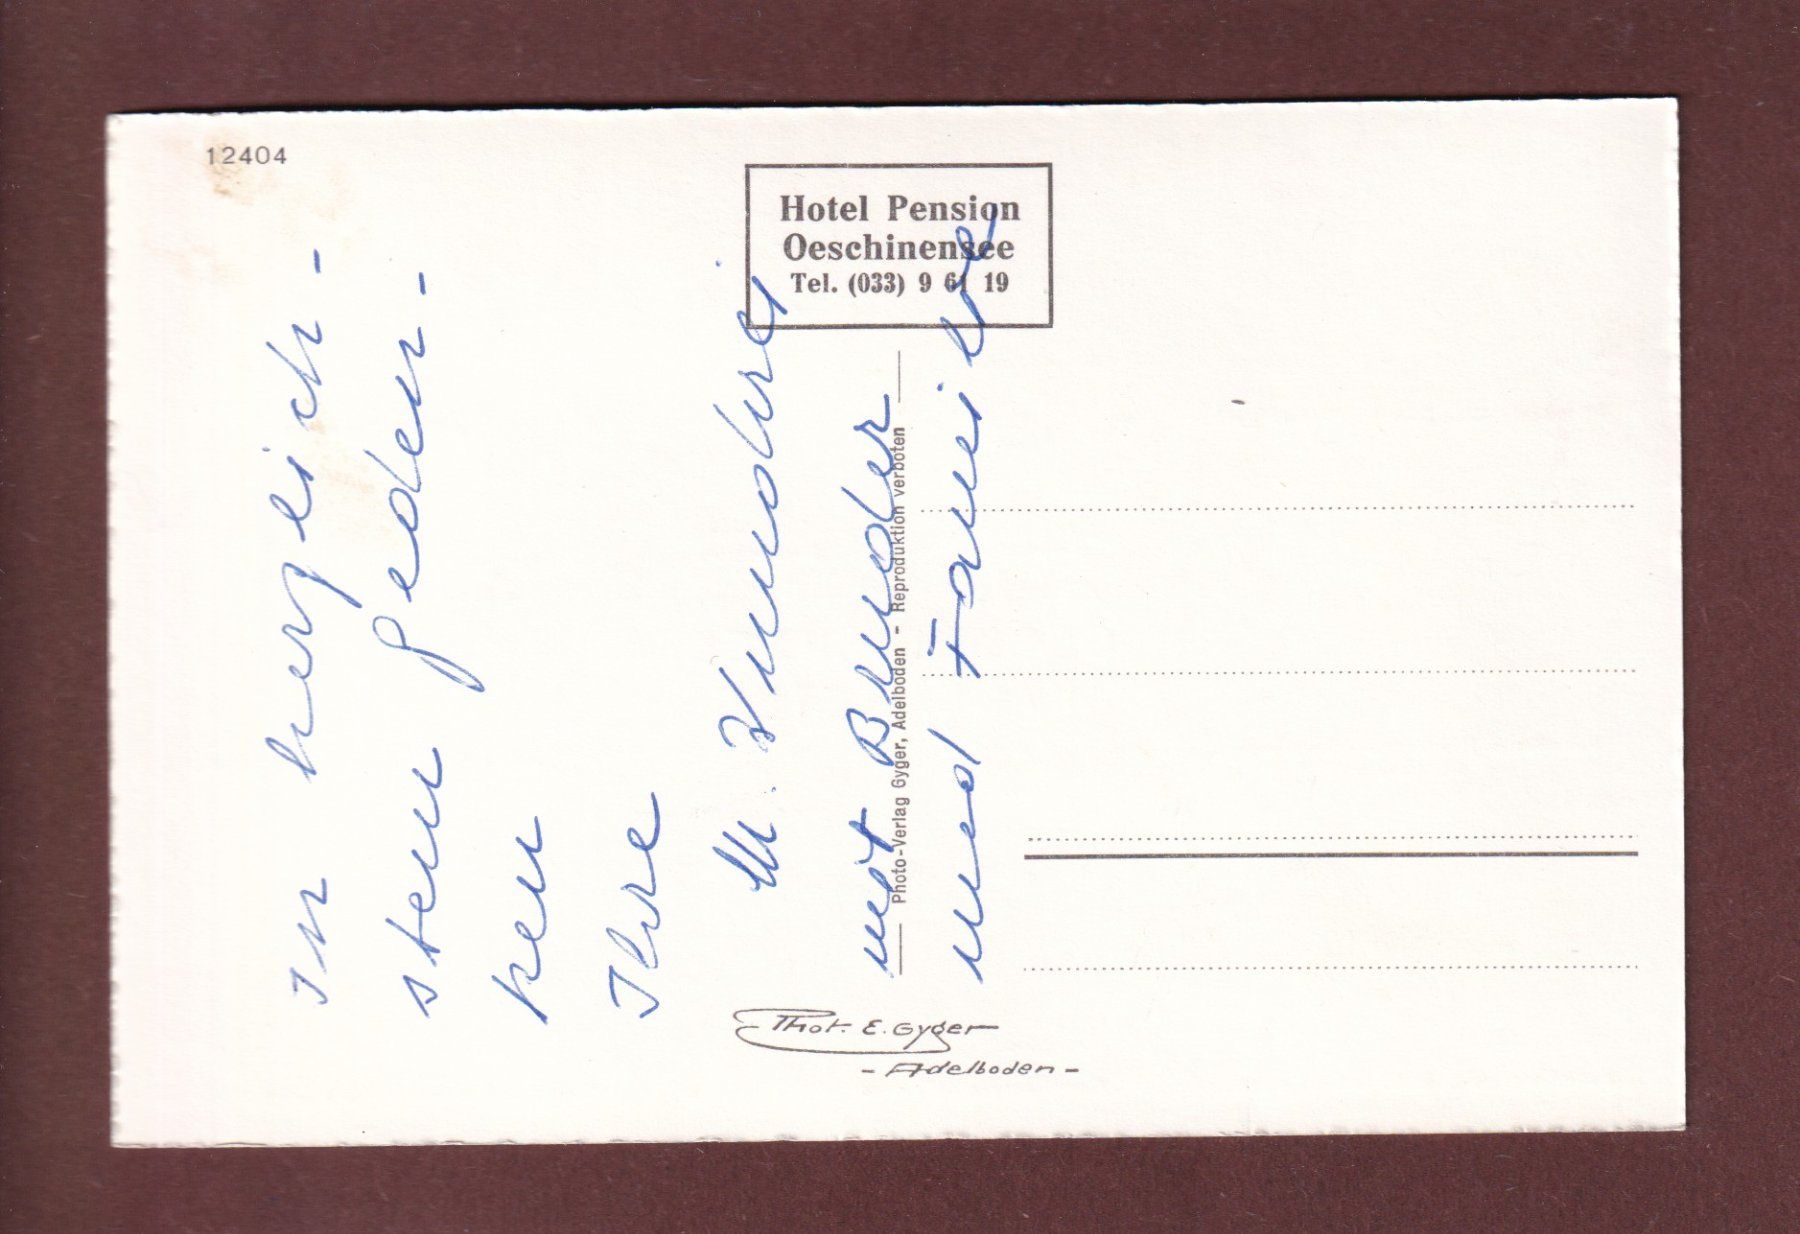 12404
Hotel Pension
Oeschinensee
Tel. (033) 9 61 19
In herzlich-
stem geden-
ken
Ihre
M.
mit Bruder
und Familie
Photo-Verlag Gyger, Adelboden - Reproduktion verboten
Phot. E. Gyger
- Adelboden -